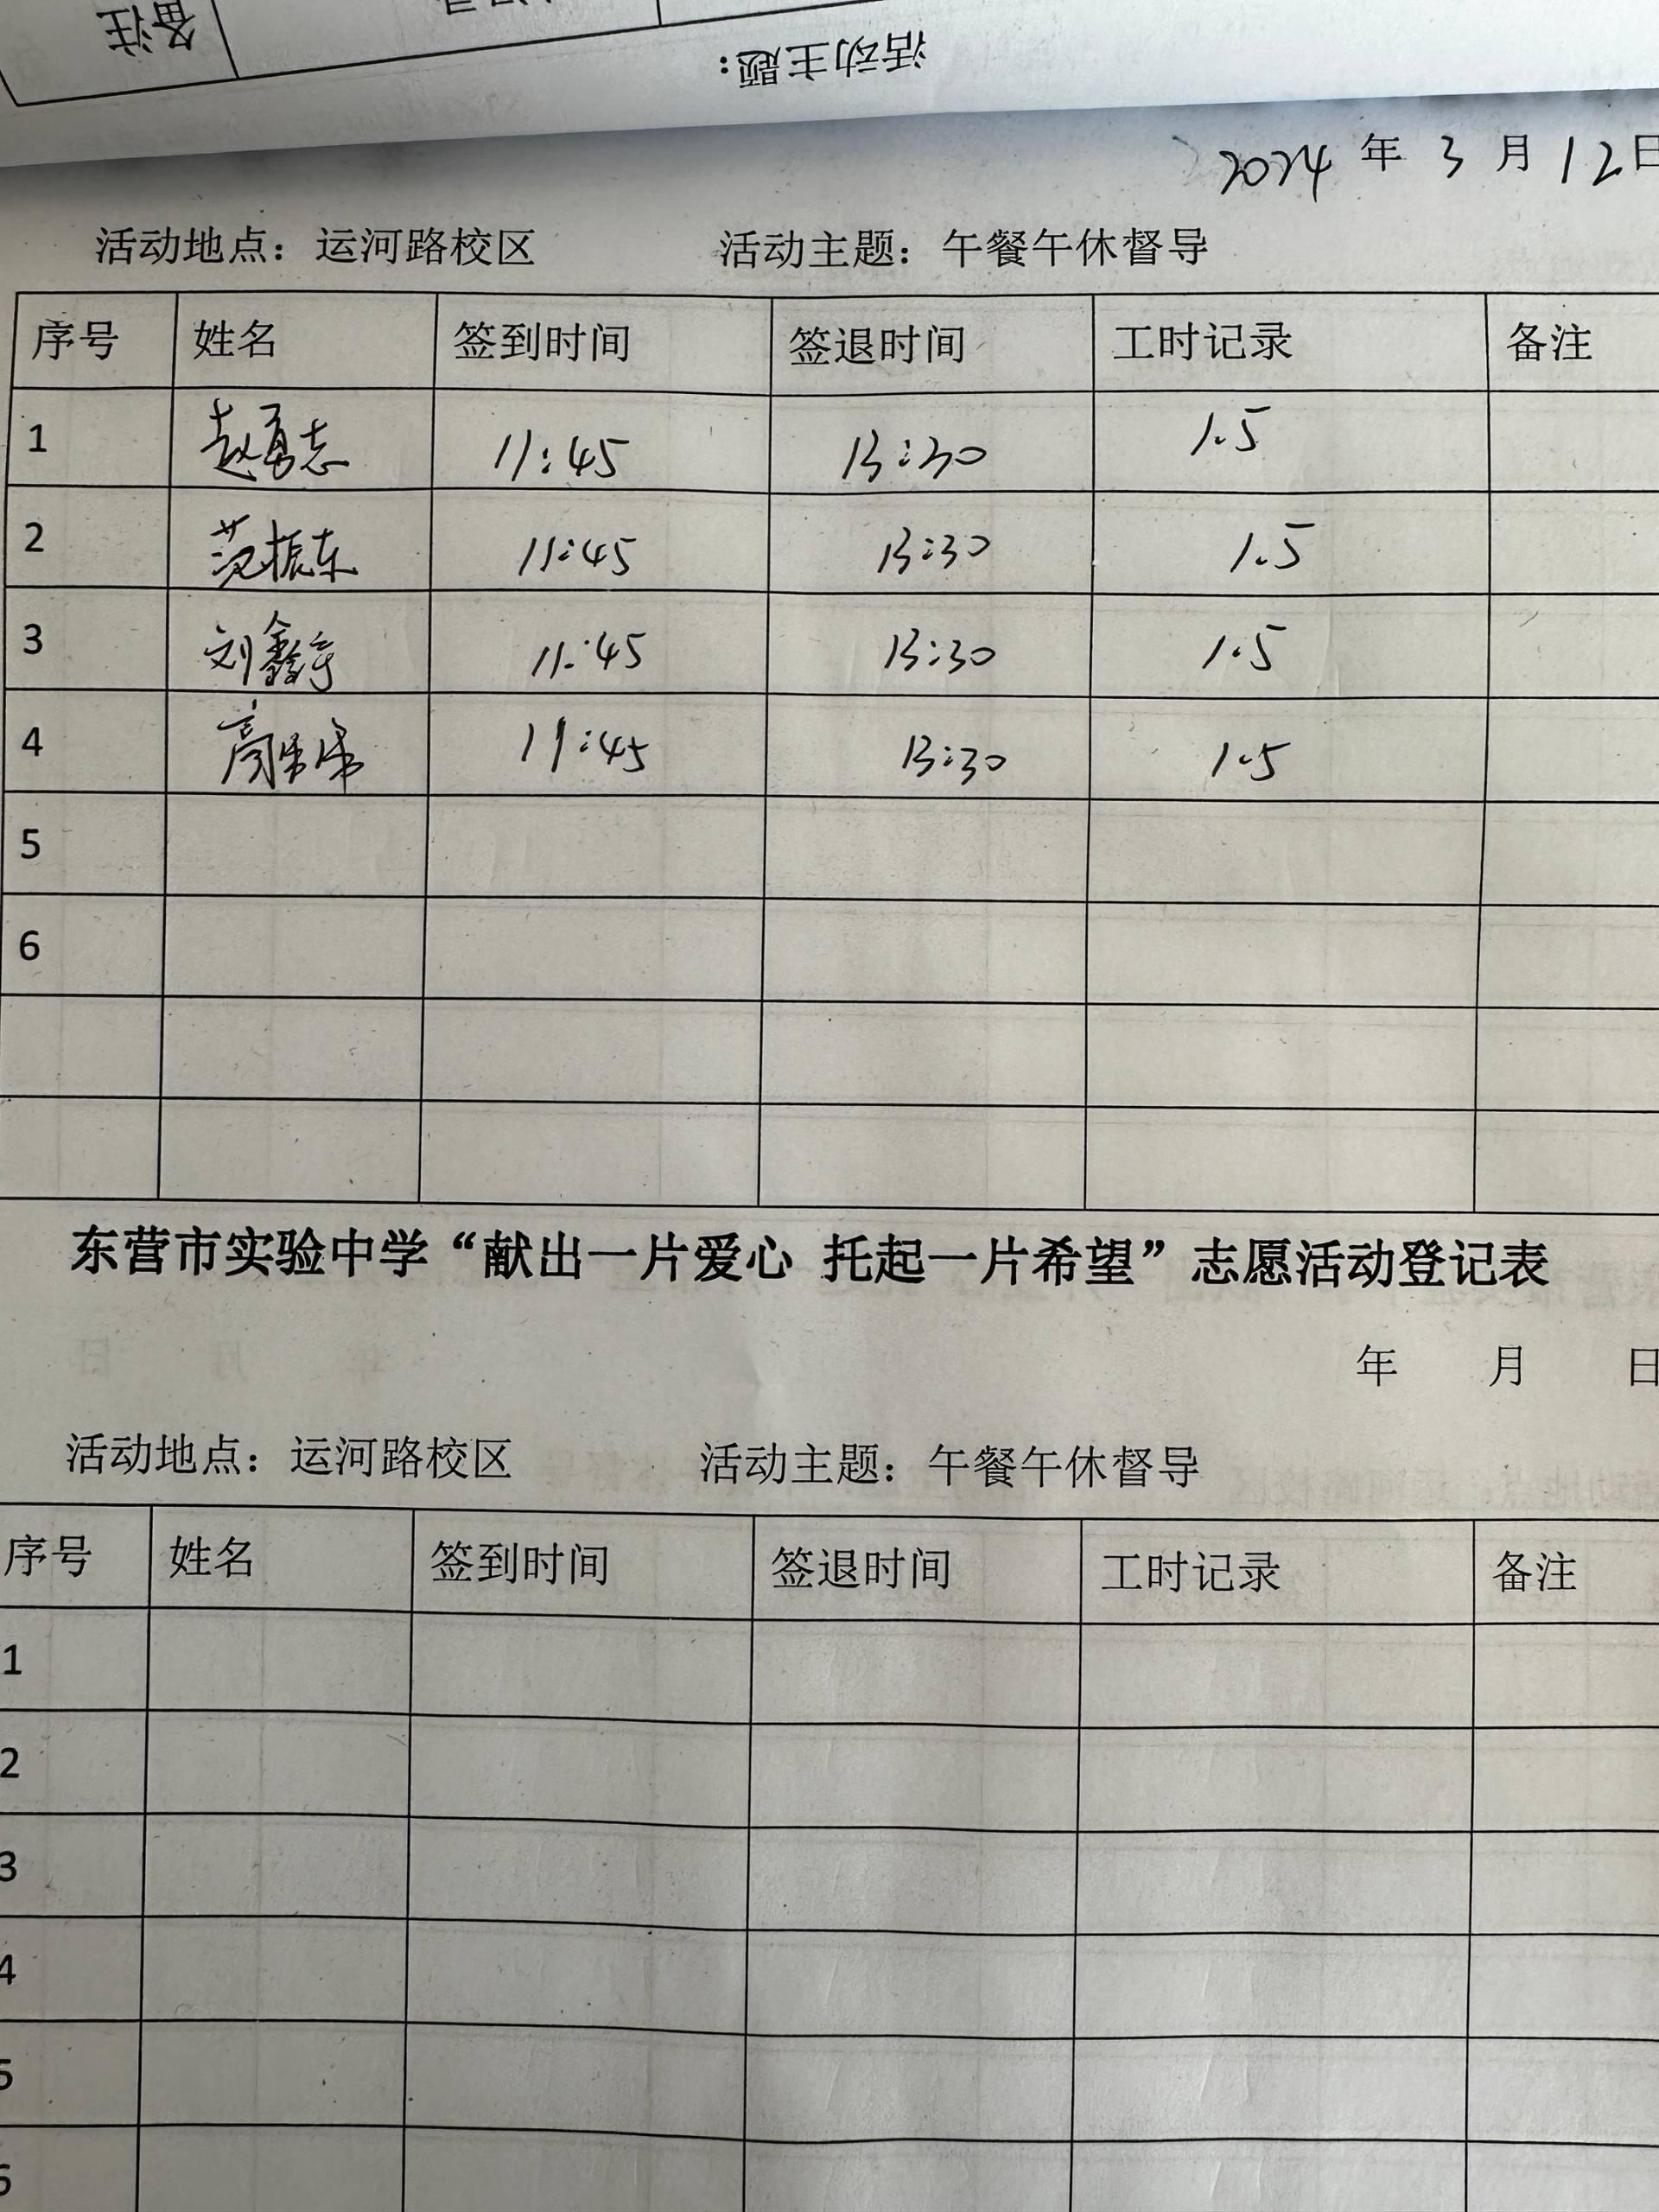 备注
活动主题：
2024年3月12日
活动地点：运河路校区 活动主题：午餐午休督导
序号 姓名 签到时间 签退时间 工时记录 备注
1 赵勇志 11:45 13:30 1.5
2 范振东 11:45 13:30 1.5
3 刘鑫宇 11:45 13:30 1.5
4 高 11:45 13:30 1.5
5
6
东营市实验中学“献出一片爱心 托起一片希望”志愿活动登记表
年 月 日
活动地点：运河路校区 活动主题：午餐午休督导
序号 姓名 签到时间 签退时间 工时记录 备注
1
2
3
4
5
6